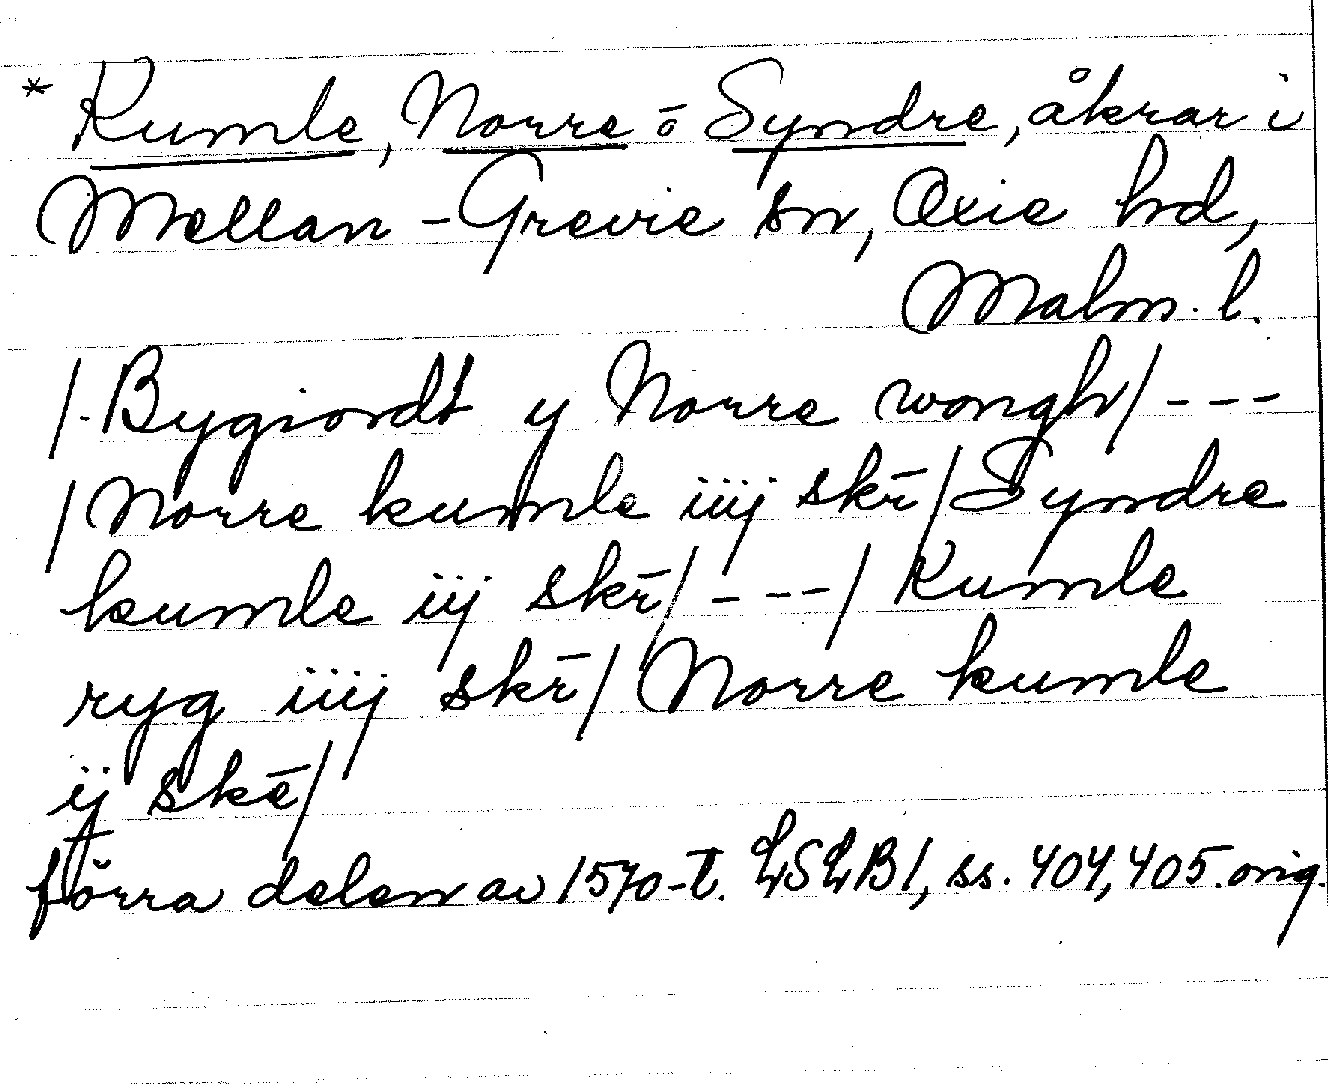 * Kumle, Norre ō Syndre, åkrar i
Mellan-Grevie sn, Oxie hd,
Malm. l.
/. Bygiordt y Norre wongh/ ---
/ Norre kumle iiij skr̄/ Syndre
kumle iij skr̄/ ---/ Kumle
ryg iiij skr̄/ Norre kumle
ij skē/
förra delen av 1570-t. LSLB1, ss. 404, 405. orig.